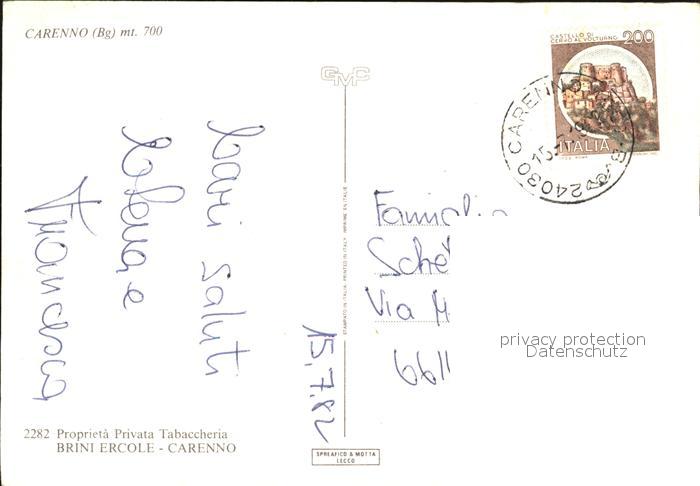 CARENNO (Bg) mt. 700
GMC
CASTELLO DI
CERRO AL VOLTURNO 200
ITALIA
24030 CARENNO
Cari saluti
Elena e
Francesca
15.7.82
STAMPATO IN ITALIA PRINTED IN ITALY IMPRIME EN ITALIE
Famiglia
Sche
Via M
6611
privacy protection
Datenschutz
2282 Proprietà Privata Tabaccheria
BRINI ERCOLE - CARENNO
SPREAFICO & MOTTA
LECCO